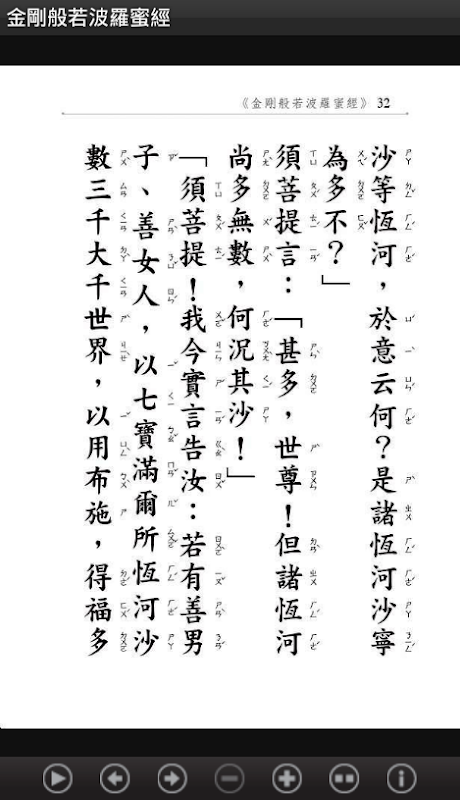 金剛般若波羅蜜經
《金剛般若波羅蜜經》 32
沙等恆河，於意云何？是諸恆河沙寧
為多不？」
須菩提言：「甚多，世尊！但諸恆河
尚多無數，何況其沙！」
「須菩提！我今實言告汝：若有善男
子、善女人，以七寶滿爾所恆河沙
數三千大千世界，以用布施，得福多